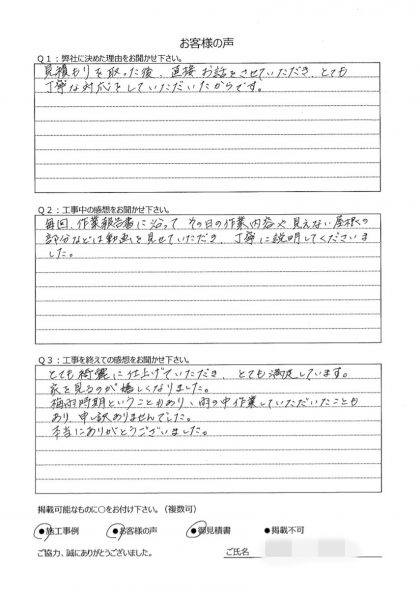 お客様の声
Q1：弊社に決めた理由をお聞かせ下さい。
見積もりを取った後、直接お話をさせていただき、とても
丁寧な対応をしていただいたからです。
Q2：工事中の感想をお聞かせ下さい。
毎回、作業報告書に沿って その日の作業内容や見えない屋根の
部分などは動画を見せていただき、丁寧に説明してくださいま
した。
Q3：工事を終えての感想をお聞かせ下さい。
とても綺麗に仕上げていただき、とても満足しています。
家を見るのが嬉しくなりました。
梅雨時期ということもあり、雨の中作業していただいたことも
あり、申し訳ありませんでした。
本当にありがとうございました。
掲載可能なものに○をお付け下さい。（複数可）
●施工事例 ●お客様の声 ●御見積書 ●掲載不可
ご協力、誠にありがとうございました。 ご氏名